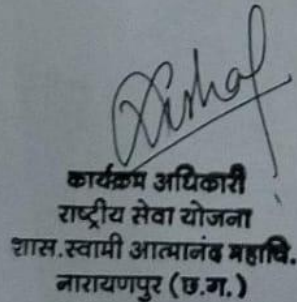 कार्यक्रम अधिकारी
राष्ट्रीय सेवा योजना
शास.स्वामी आत्मानंद महावि.
नारायणपुर (छ.ग.)